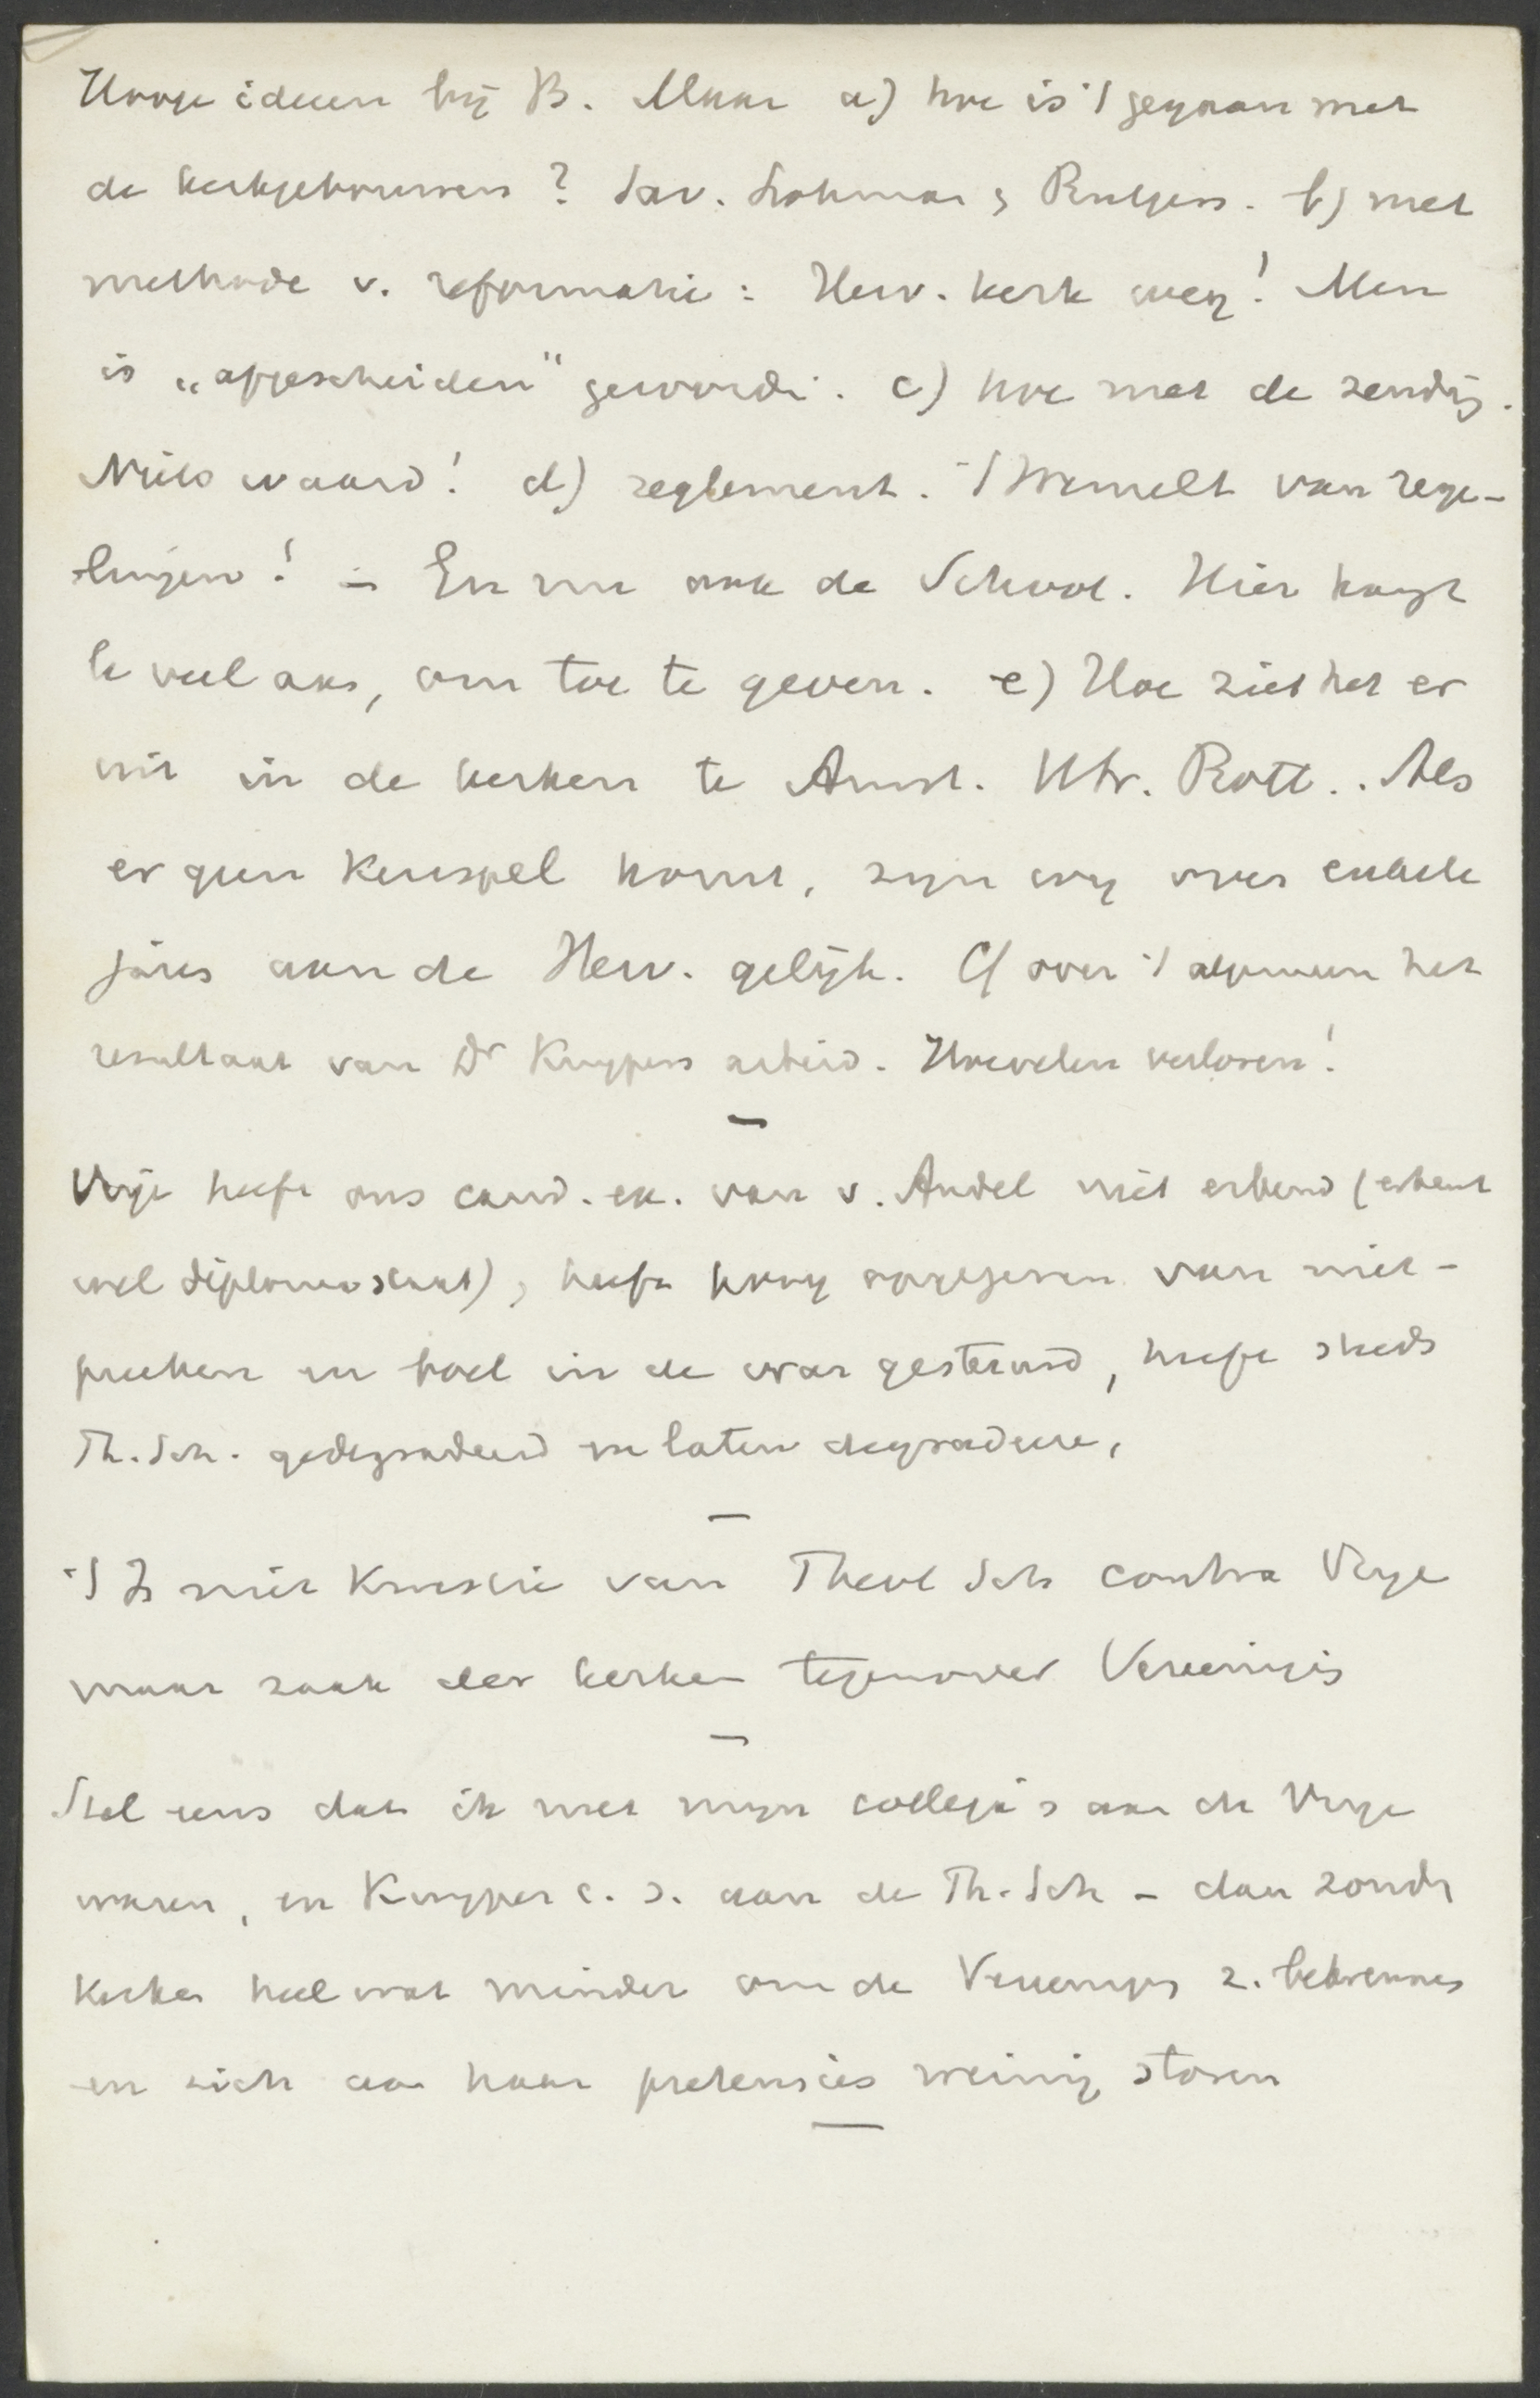 Hooge ideeen bij B. Maar a) hoe is 't gegaan met
de kerkgebouwen? Sav. Lohman & Rutgers. b) met
methode v. reformatie: Herv. kerk weg! Men
is „afgescheiden" geword. c) hoe met de zendg.
Niets waard! d) reglement. 't Wemelt van rege-
lingen! - En nu ook de School. Hier hangt
te veel aan, om toe te geven. e) Hoe ziet het er
uit in de kerken te Amst. Utr. Rott.. Als
er geen kerspel komt, zijn wij over enkele
jaren aan de Herv. gelijk. f) over 't algemeen het
resultaat van Dr Kuypers arbeid. Hoevelen verloren!
Vrije heeft ons cand. ex. van v. Andel niet erkend (erkent
wel diploma staat), heeft opgegeven van niet-
preeken en boel in de war gestuurd, heeft steeds
Th. Sch. gedegradeerd en laten degradeeren,
't Is niet kwestie van Theol Sch contra Vrije
maar zaak der kerken tegenover Vereenigg
Stel eens dat ik met mijn collega's aan de Vrije
waren, en Kuyper c.s. aan de Th. Sch - dan zoudn
kerken heel wat minder om de Vereenigg z. bekreunen
en zich aan haar pretensies weinig storen